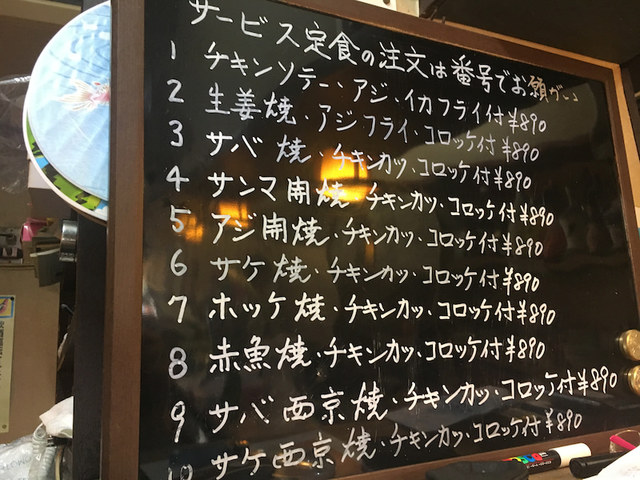 サービス定食の注文は番号でお願
1 チキンソテー・アジ・イカフライ付¥890
2 生姜焼・アジフライ・コロッケ付¥890
3 サバ焼・チキンカツ・コロッケ付¥890
4 サンマ開焼・チキンカツ・コロッケ付¥890
5 アジ開焼・チキンカツ・コロッケ付¥890
6 サケ焼・チキンカツ・コロッケ付¥890
7 ホッケ焼・チキンカツ・コロッケ付¥890
8 赤魚焼・チキンカツ・コロッケ付¥890
9 サバ西京焼・チキンカツ・コロッケ付¥890
10 サケ西京焼・チキンカツ・コロッケ付¥890